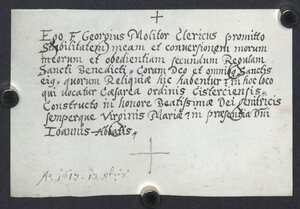 Ego F. Georgius Molitor Clericus promitto
Stabilitatem meam et conversionem morum
meorum et obedientiam secundum Regulam
Sancti Benedicti, Coram Deo et omnibus Sanctis
eius, quorum Reliquiæ hic habentur, in hoc loco
qui vocatur Cæsarea ordinis Cisterciensis,
Constructo in honore Beatissimæ Dei Genitricis
semperque Virginis Mariæ in præsentia Dni
Ioannis Abbatis.
Aº 1613.